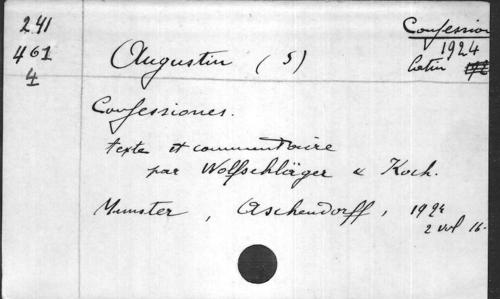 241
461
4
Confession
1924
latin
Augustin (S)
Confessiones.
texte et commentaire
par Wolfschläger & Koch.
Munster, Aschendorff, 1924
2 vol 16.